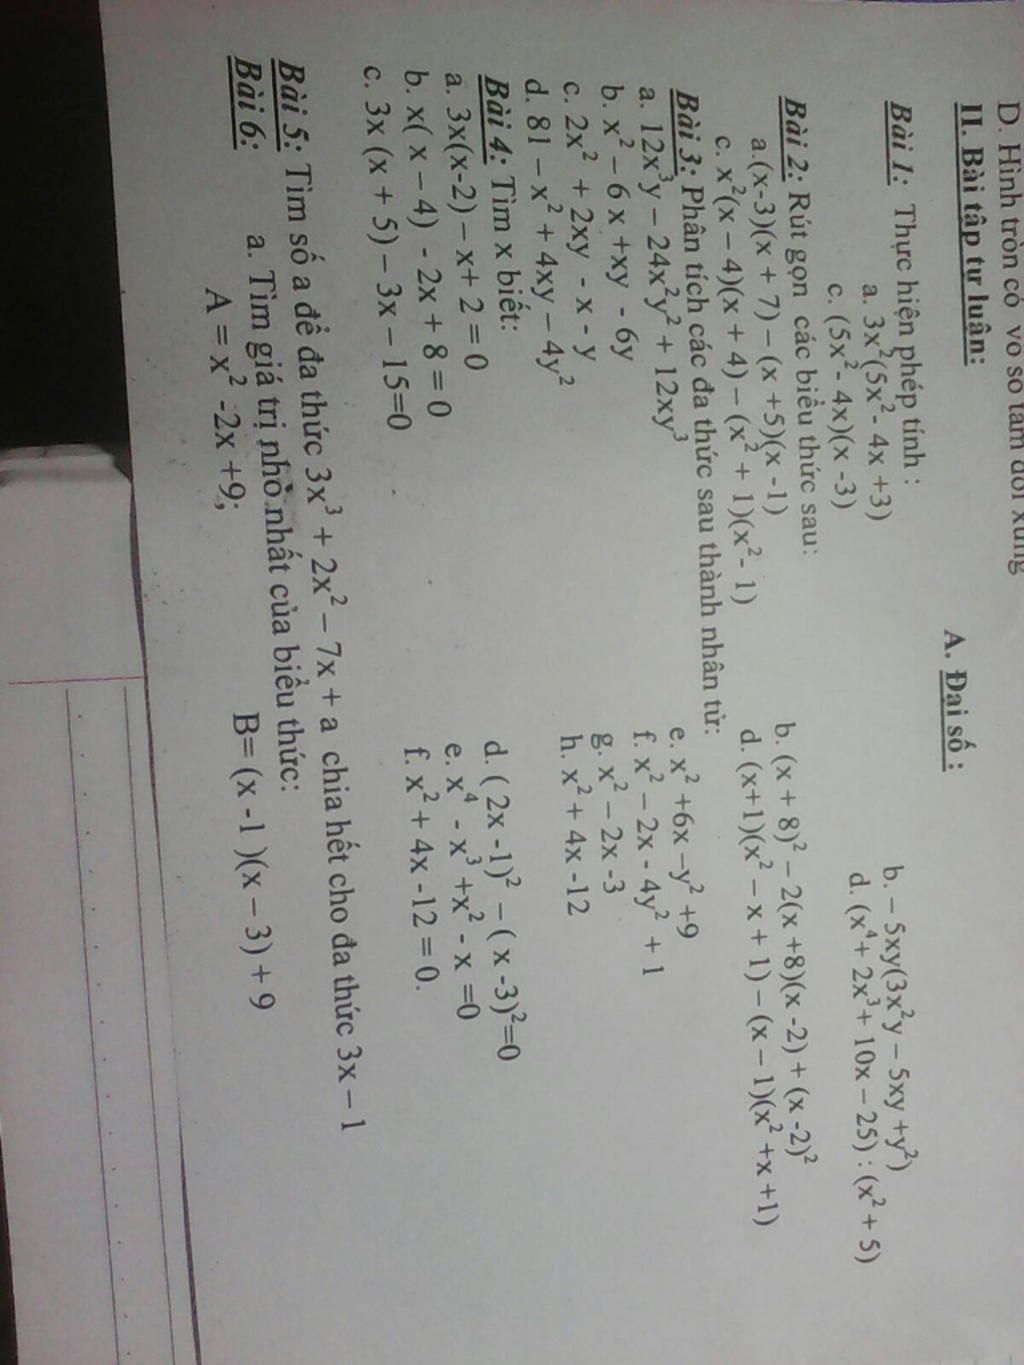 D. Hình tròn có vô số tâm đối xứng
II. Bài tập tự luận:
A. Đại số :
Bài 1: Thực hiện phép tính :
a. 3x²(5x² - 4x +3)
b. – 5xy(3x²y – 5xy +y²)
c. (5x² - 4x)(x -3)
d. (x⁴ + 2x³ + 10x – 25) : (x² + 5)
Bài 2: Rút gọn các biểu thức sau:
a.(x-3)(x + 7) – (x +5)(x -1)
b. (x + 8)² – 2(x +8)(x -2) + (x -2)²
c. x²(x – 4)(x + 4) – (x² + 1)(x² - 1)
d. (x+1)(x² – x + 1) – (x – 1)(x² +x +1)
Bài 3: Phân tích các đa thức sau thành nhân tử:
a. 12x³y – 24x²y² + 12xy³
e. x² +6x –y² +9
b. x² – 6 x +xy - 6y
f. x² – 2x - 4y² + 1
c. 2x² + 2xy - x - y
g. x² – 2x -3
d. 81 – x² + 4xy – 4y²
h. x² + 4x -12
Bài 4: Tìm x biết:
a. 3x(x-2) – x+ 2 = 0
d. ( 2x -1)² – ( x -3)²=0
b. x( x – 4) - 2x + 8 = 0
e. x⁴ - x³ +x² - x =0
c. 3x (x + 5) – 3x – 15=0
f. x² + 4x -12 = 0.
Bài 5: Tìm số a để đa thức 3x³ + 2x² – 7x + a chia hết cho đa thức 3x – 1
Bài 6: a. Tìm giá trị nhỏ nhất của biểu thức:
A = x² -2x +9; B= (x -1 )(x – 3) + 9